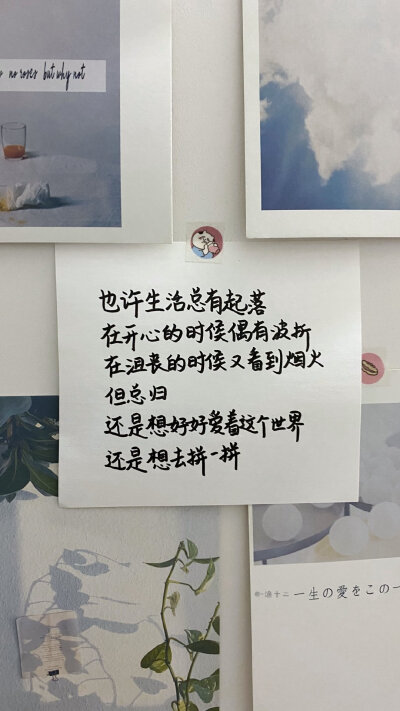 no roses but why not
也许生活总有起落
在开心的时候偶有波折
在沮丧的时候又看到烟火
但总归
还是想好好爱着这个世界
还是想去拼一拼
一生の愛をこの一